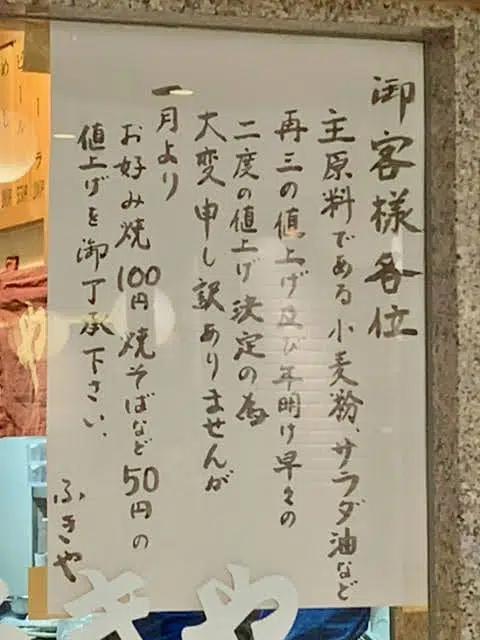 御客様各位
主原料である小麦粉、サラダ油など
再三の値上げ及び年明け早々の
二度の値上げ決定の為
大変申し訳ありませんが
一月より
お好み焼100円焼そばなど50円の
値上げを御了承下さい、
ふきや
きや